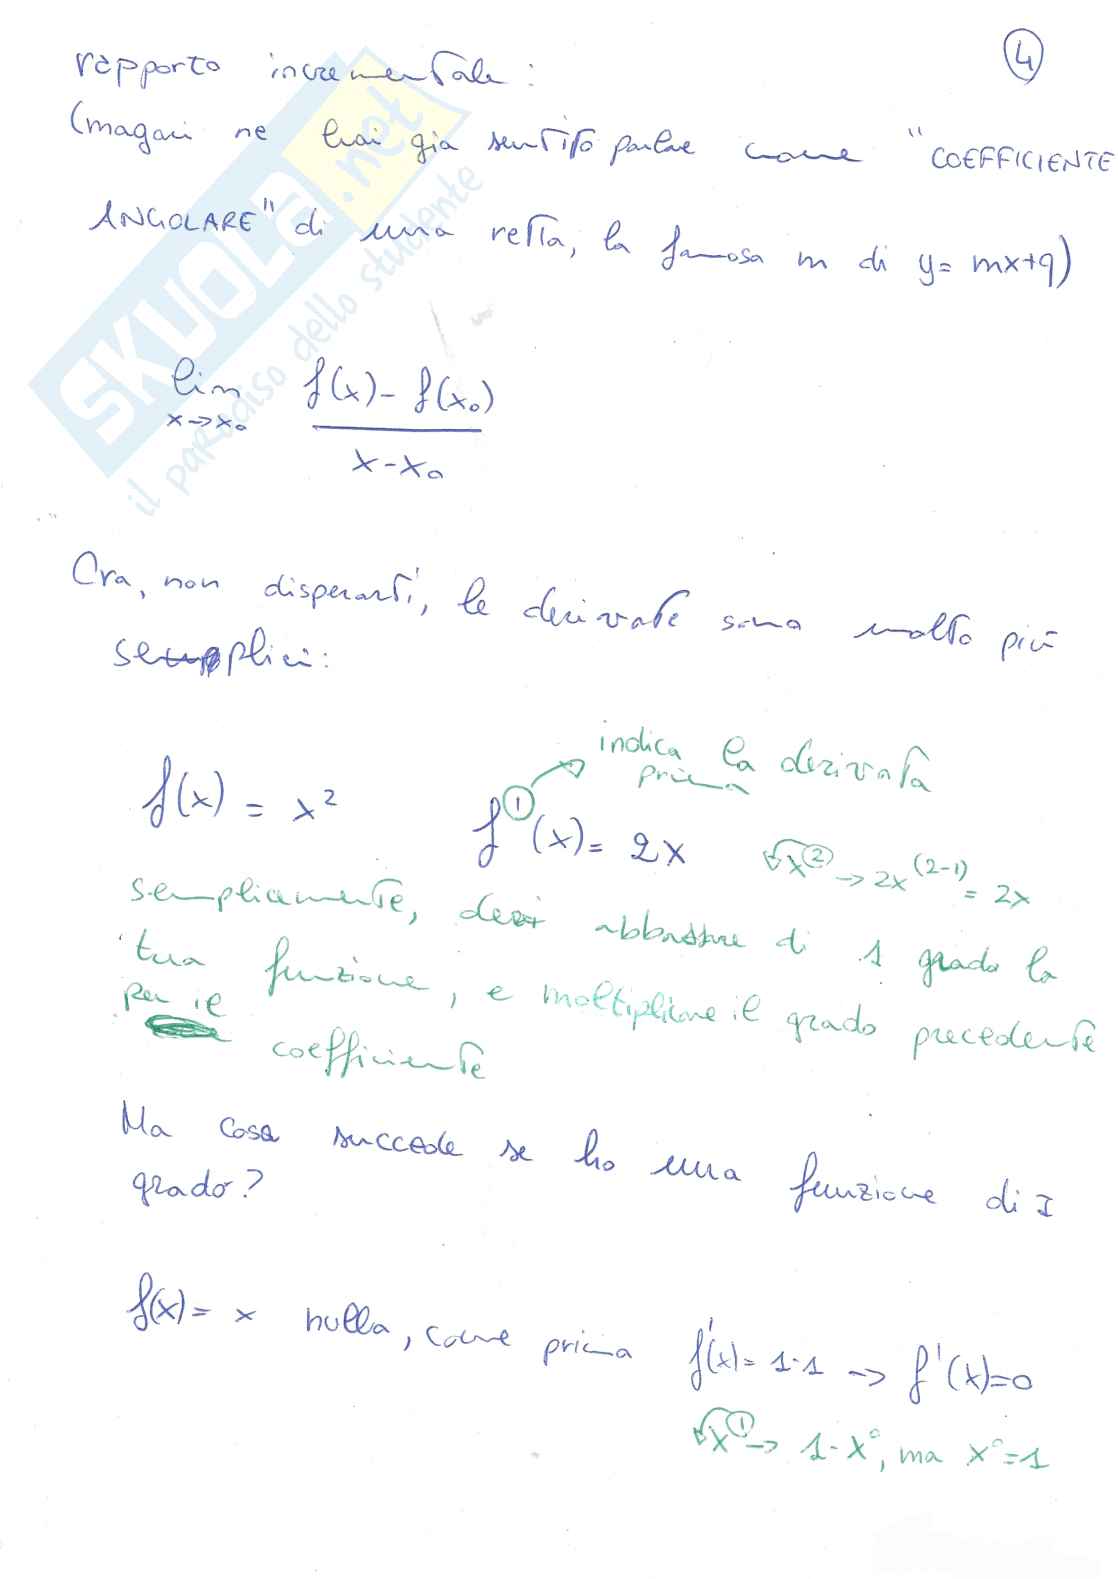 4
rapporto incrementale :
(magari ne hai già sentito parlare come "COEFFICIENTE
ANGOLARE" di una retta, la famosa m di y= mx+q)
SKUOLA.net
il paradiso dello studente
lim f(x)- f(x₀)
x→x₀ x-x₀
Ora, non disperarti, le derivate sono molto più
semplici:
indica la derivata
prima
f(x) = x² f'(x)= 2x x² → 2x⁽²⁻¹⁾ = 2x
semplicemente, devi abbassare di 1 grado la
tua funzione, e moltiplicare il grado precedente
per il coefficiente
Ma cosa succede se ho una funzione di I
grado?
f(x)= x nulla, come prima f'(x)= 1·1 → f'(x)=0
x¹ → 1·x°, ma x°=1